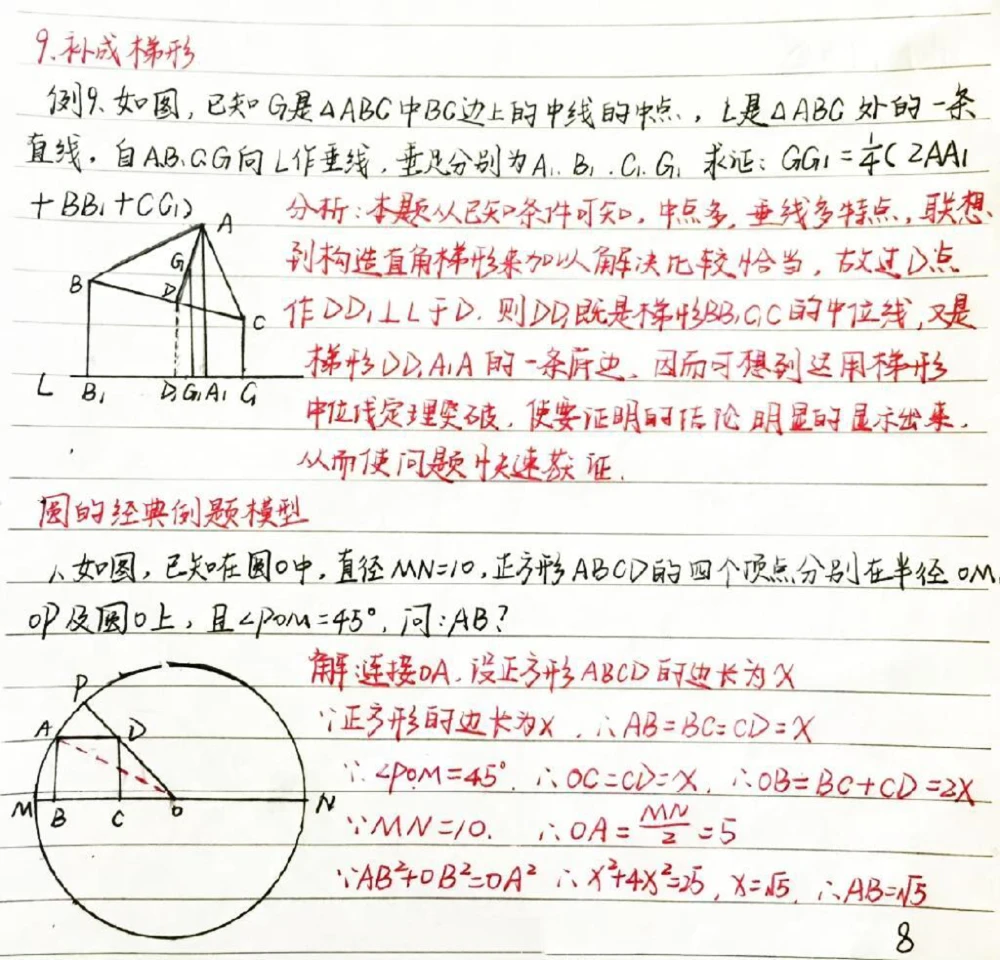 9.补成梯形
例9.如图,已知G是△ABC中BC边上的中线的中点,L是△ABC外的一条
直线,自A.B.C.G向L作垂线,垂足分别为A₁.B₁.C₁.G₁ 求证:GG₁=¼(2AA₁
+BB₁+CC₁)
分析:本题从已知条件可知,中点多,垂线多特点,联想
到构造直角梯形来加以解决比较恰当,故过D点
作DD₁⊥L于D.则DD₁既是梯形BB₁C₁C的中位线,又是
梯形DD₁A₁A的一条底边,因而可想到运用梯形
中位线定理突破,使要证明的结论明显的显示出来,
从而使问题快速获证.
A
B
G
D
C
L B₁ D₁ G₁ A₁ C₁
圆的经典例题模型
1.如图,已知在圆O中,直径MN=10,正方形ABCD的四个顶点分别在半径OM,
OP及圆O上,且∠POM=45°,问:AB?
解:连接OA.设正方形ABCD的边长为X
∵正方形的边长为X,∴AB=BC=CD=X
∵∠POM=45°,∴OC=CD=X,∴OB=BC+CD=2X
∵MN=10.∴OA=MN/2=5
∵AB²+OB²=OA² ∴X²+4X²=25,X=√5,∴AB=√5
P
A D
M B C O N
8